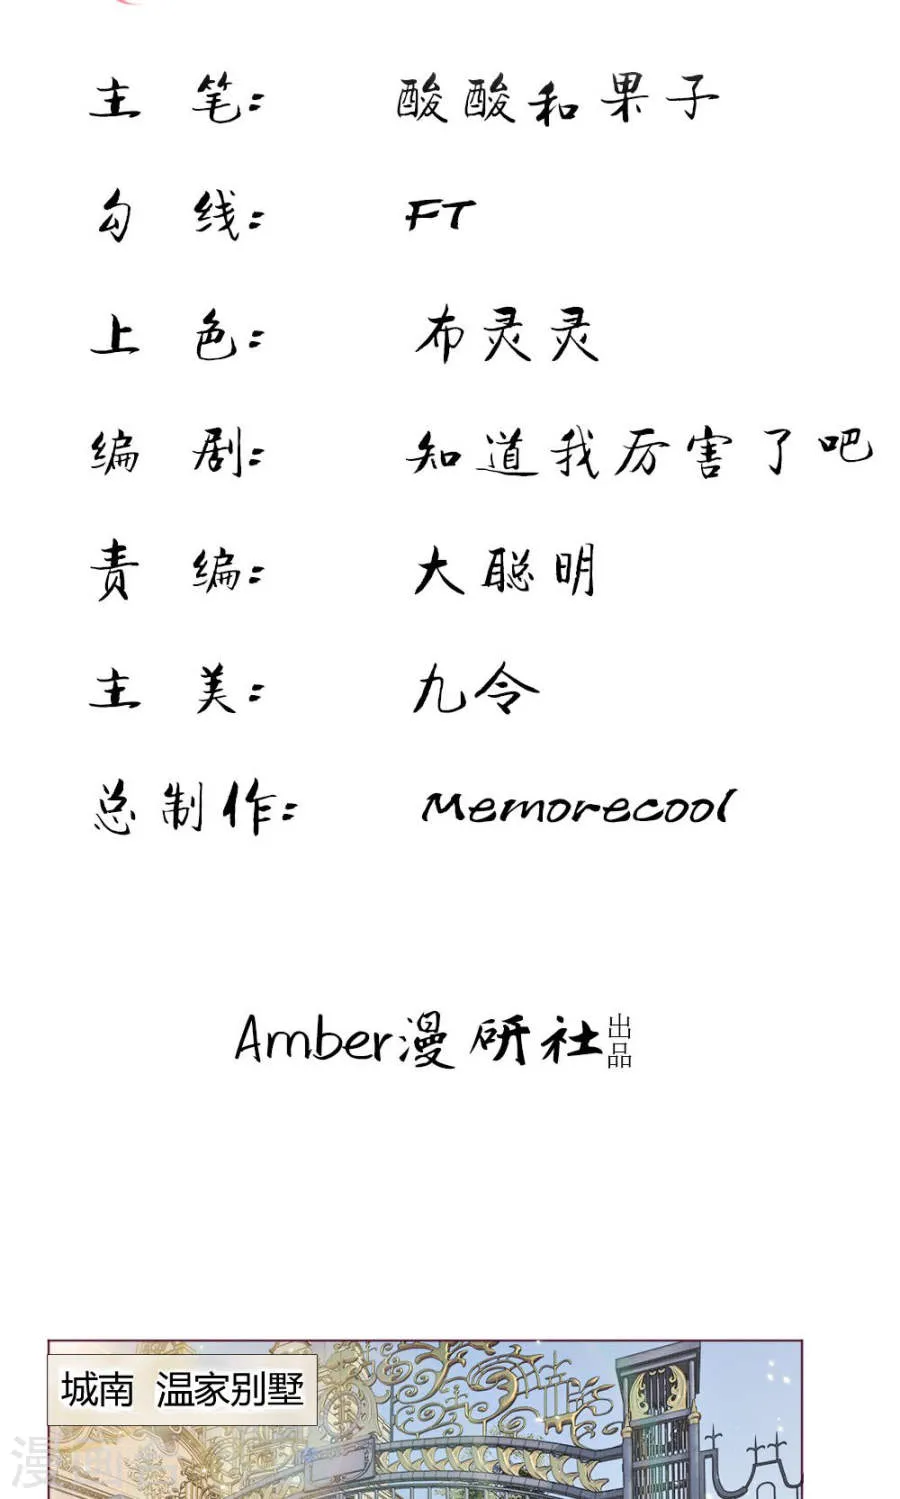 主 笔: 酸酸和果子
勾 线: FT
上 色: 布灵灵
编 剧: 知道我厉害了吧
责 编: 大聪明
主 美: 九令
总制作: Memorecool
Amber漫研社出品
城南 温家别墅